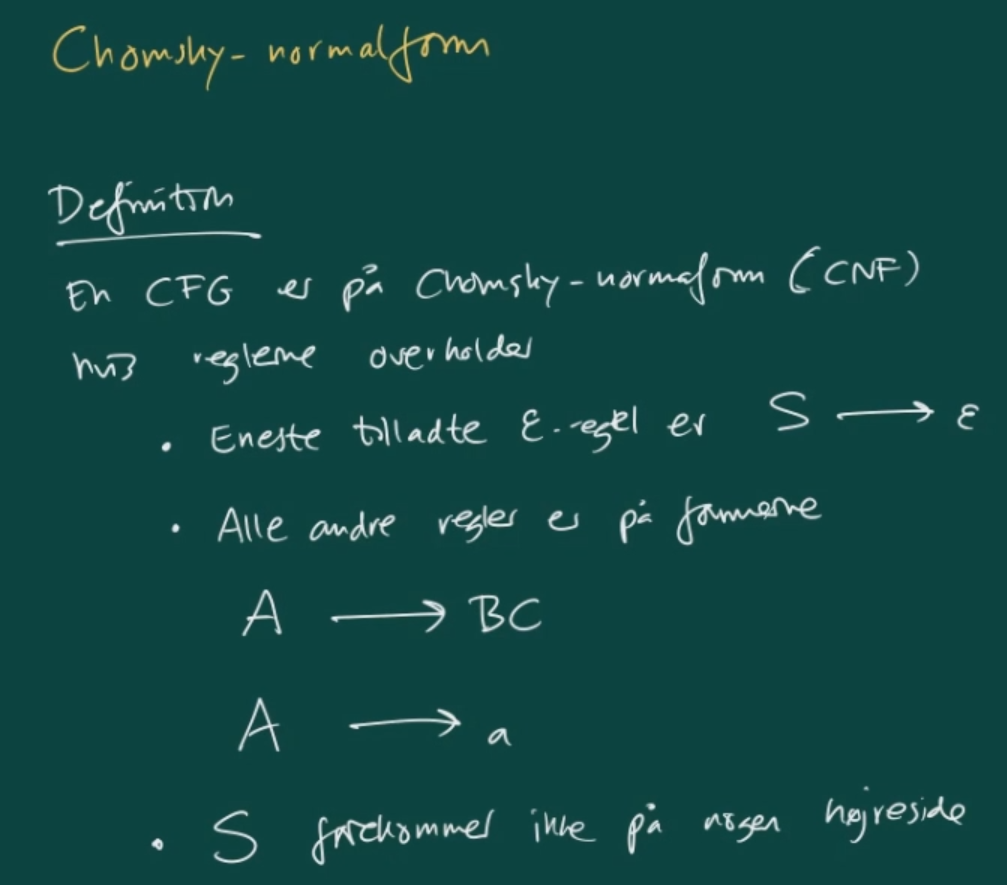 Chomsky-normalform
Definition
En CFG er på Chomsky-normaform (CNF)
hvis reglerne overholder
• Eneste tilladte ε-regel er S → ε
• Alle andre regler er på formerne
A → BC
A → a
• S forekommer ikke på nogen højreside